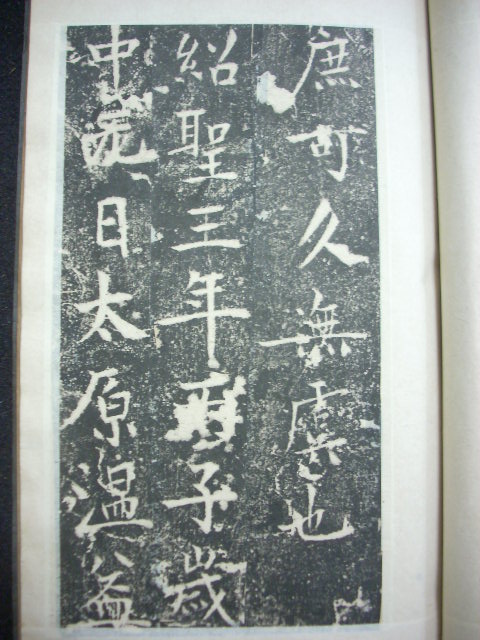 庶可久無虞也
紹聖三年丙子歲
中浣日太原温益